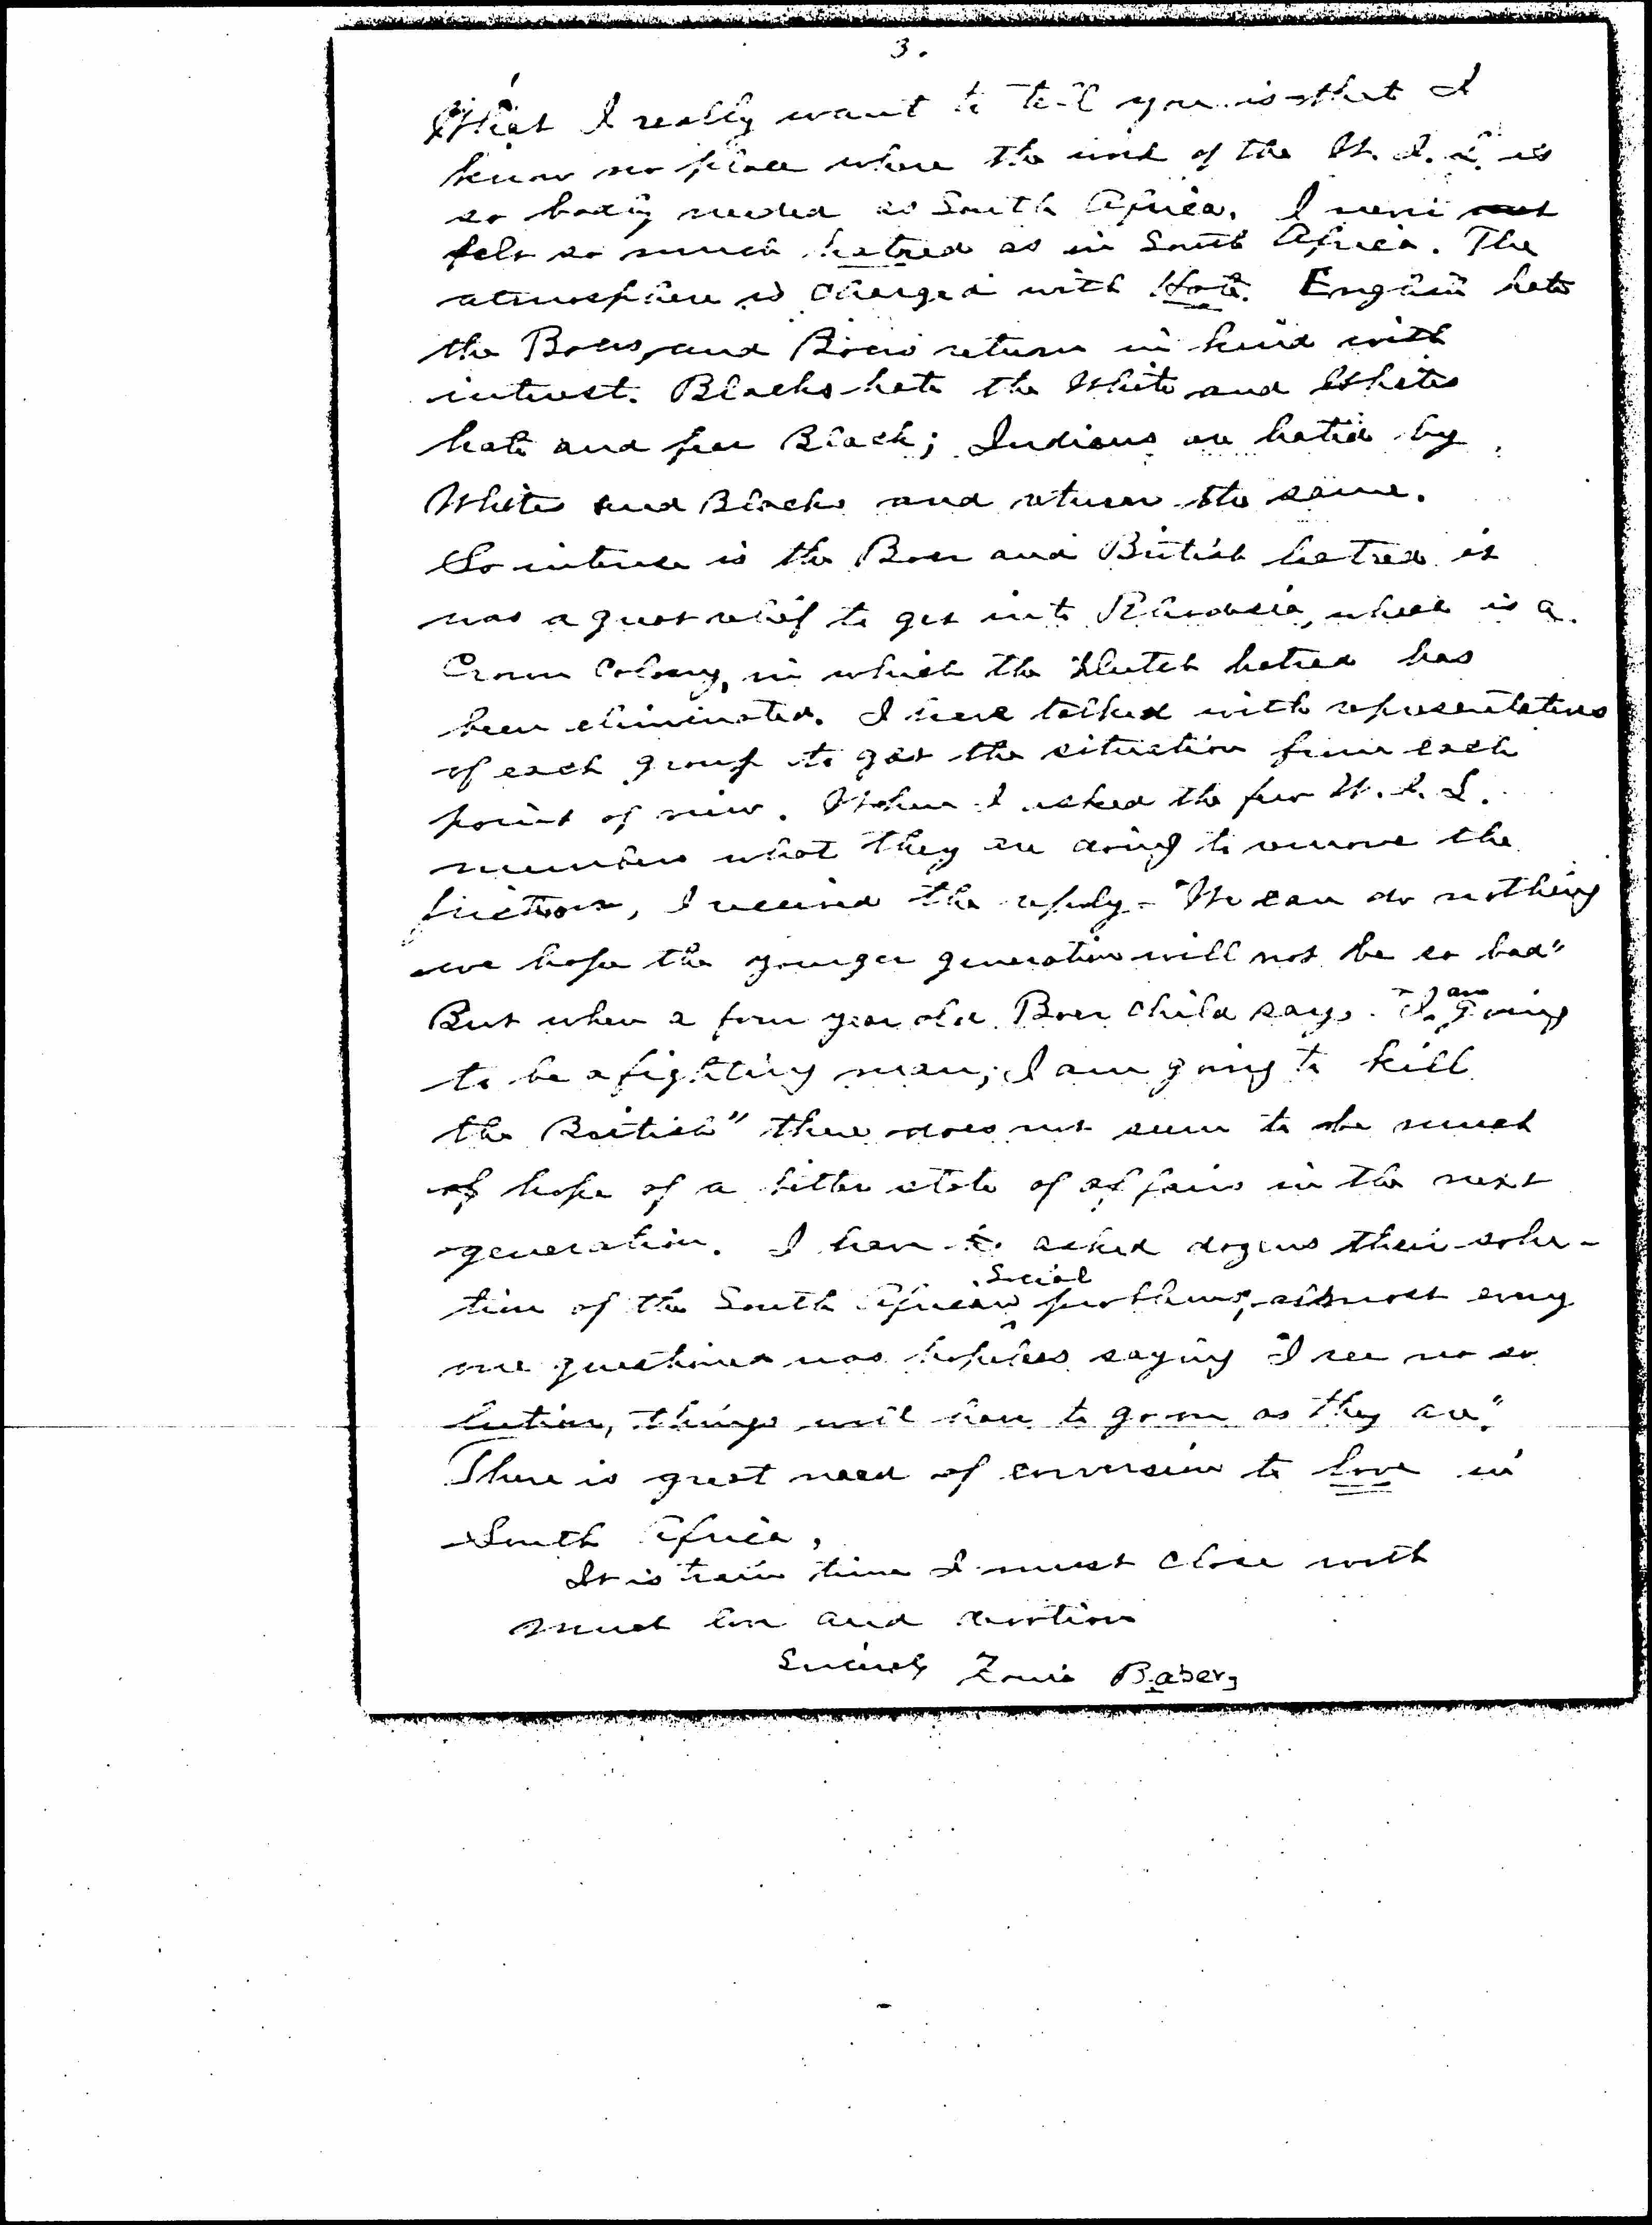 3.
What I really want to tell you is that I
know no place where the work of the W. I. L. is
so badly needed as South Africa. I never met
felt so much hatred as in South Africa. The
atmosphere is charged with Hate. English hate
the Boers, and Boers return in kind with
interest. Blacks hate the White and Whites
hate and fear Black; Indians are hated by
White and Blacks and return the same.
So intense is the Boer and British hatred it
was a great relief to get into Rhodesia, which is a
Crown Colony, in which the Dutch hatred has
been eliminated. I have talked with representatives
of each group to get the situation from each
point of view. When I asked the few W. I. L.
members what they are doing to remove the
friction, I received the reply - "We can do nothing
we hope the younger generation will not be so bad"
But when a four year old Boer child says. "I am going
to be a fighting man; I am going to kill
the British" there does not seem to be much
of hope of a better state of affairs in the next
generation. I have to asked dozens their solu-
tion of the South African Social problems, almost every
one questioned was hopeless saying "I see no so
lution, things will have to go on as they are."
There is great need of conversion to love in
South Africa,
It is train time I must close with
much love and devotion
Sincerely Zonia Baber